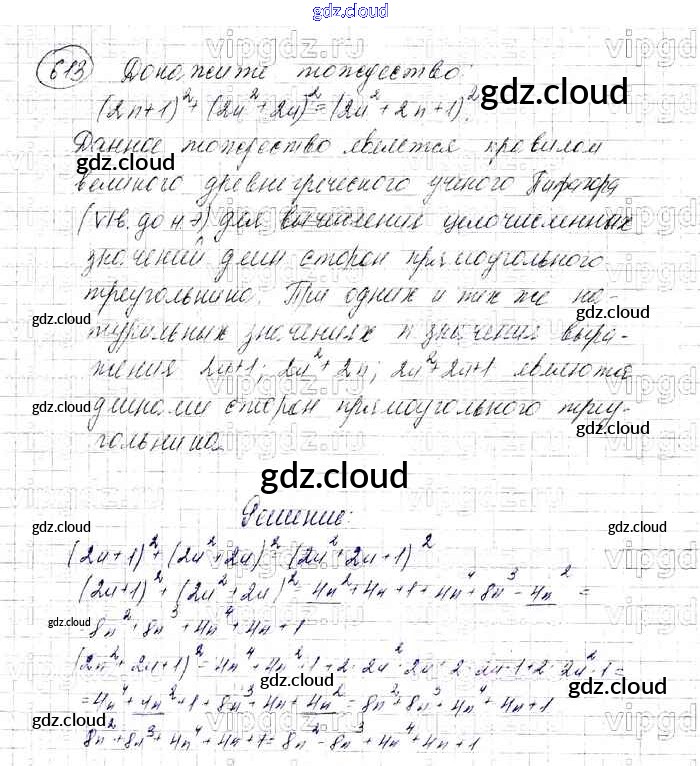 gdz.cloud
613 Докажите тождество:
(2n+1)²+(2n²+2n)²=(2n²+2n+1)².
gdz.cloud
Данное тождество является правилом
gdz.cloud
великого древнегреческого ученого Пифагора
(VIв. до н.э) для вычисления целочисленных
gdz.cloud
значений длин сторон прямоугольного
треугольника. При одних и тех же на-
gdz.cloud gdz.cloud
туральных значениях n значения выра-
жения 2n+1; 2n²+2n; 2n²+2n+1 являются
gdz.cloud gdz.cloud
длинами сторон прямоугольного треу-
гольника
gdz.cloud
Решение:
gdz.cloud gdz.cloud
(2n+1)²+(2n²+2n)²=(2n²+2n+1)²
(2n+1)²+(2n²+2n)²=4n²+4n+1+4n⁴+8n³-4n²=
gdz.cloud
=8n²+8n³+4n⁴+4n+1
(2n²+2n+1)²=4n⁴+4n²+1+2·2n²·2n+2·2n·1+2·2n²·1=
gdz.cloud
=4n⁴+4n²+1+8n³+4n+4n²=8n²+8n³+4n⁴+4n+1
gdz.cloud gdz.cloud
8n²+8n³+4n⁴+4n+1=8n²-8n³+4n⁴+4n+1